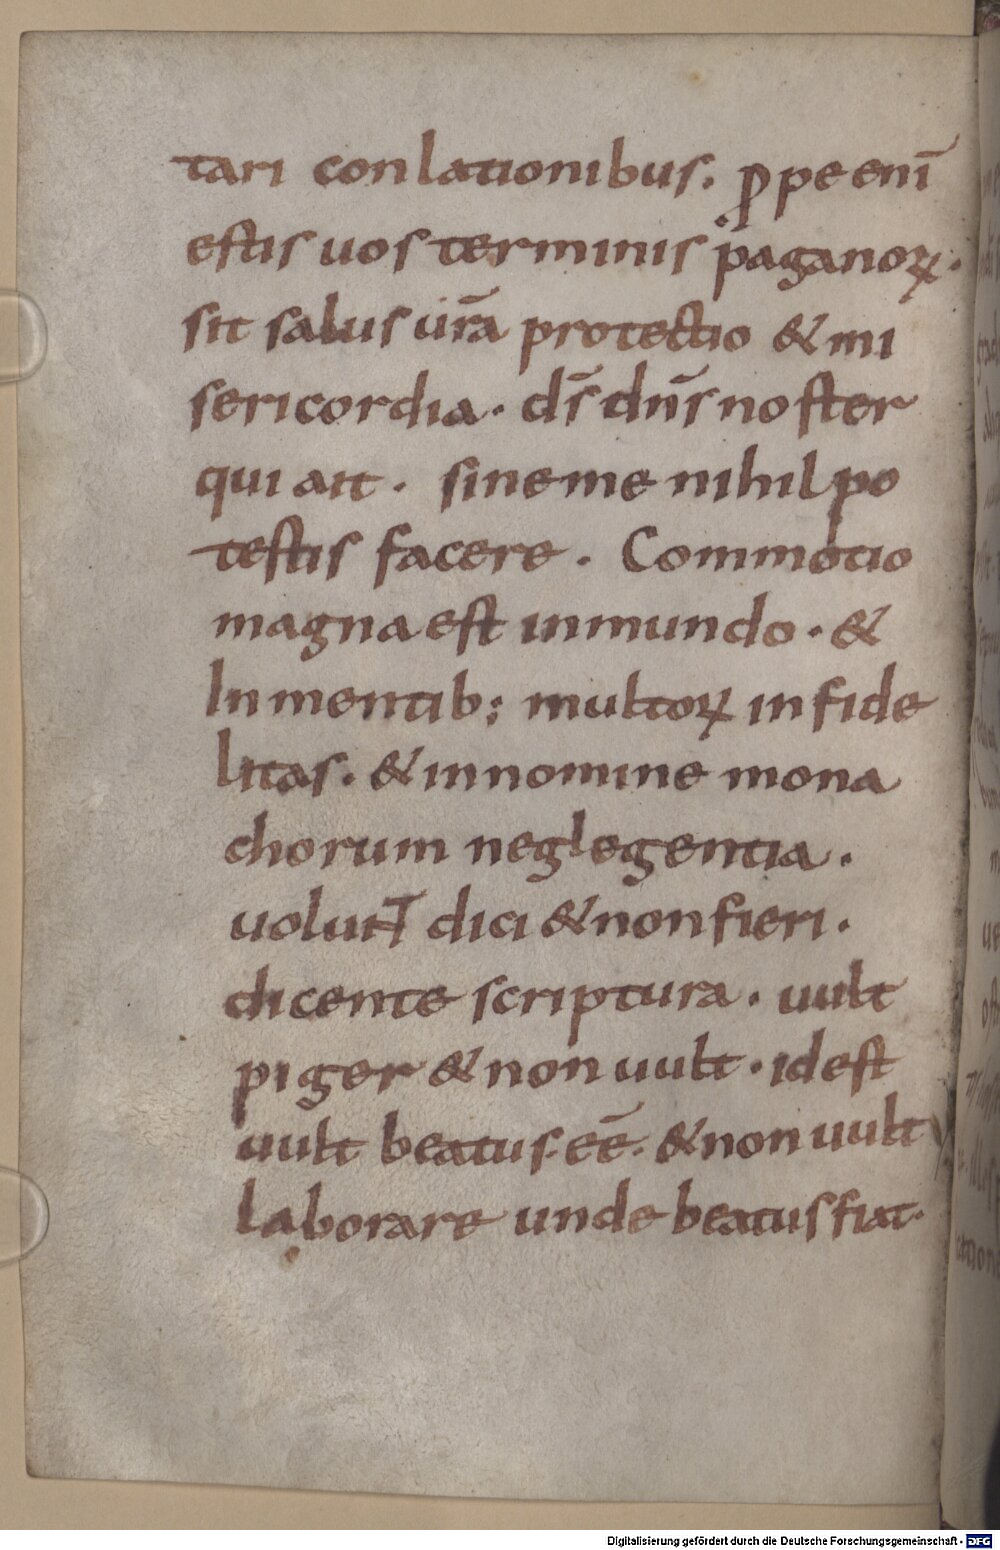 tari conlationibus. ꝓpe enī
estis uos terminis paganoꝝ.
sit salus ur̄a protectio & mi
sericordia. ds̄ dn̄s noster
qui ait. sine me nihil po
testis facere. Commotio
magna est in mundo. &
In mentib; multoꝝ infide
litas. & in nomine mona
chorum neglegentia.
uoluNT dici & non fieri.
dicente scriptura. uult
piger & non uult. id est
uult beatus eē. & non uult
laborare unde beatus fiat.
Digitalisierung gefördert durch die Deutsche Forschungsgemeinschaft - DFG